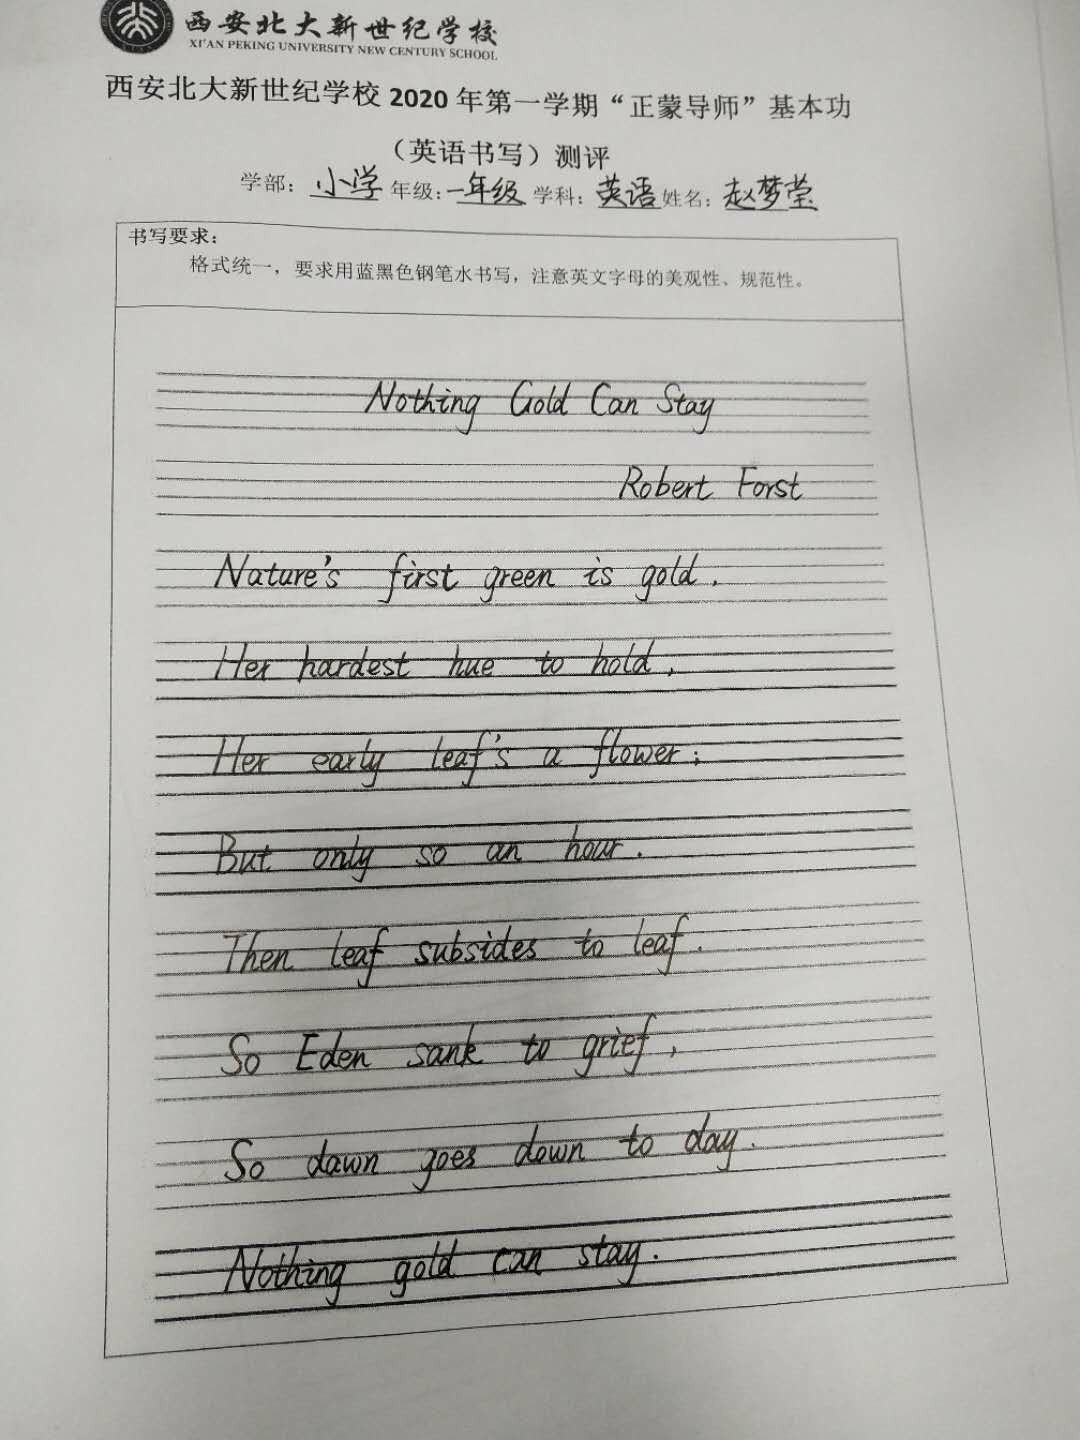 西安北大新世纪学校
XI'AN PEKING UNIVERSITY NEW CENTURY SCHOOL
西安北大新世纪学校 2020 年第一学期“正蒙导师”基本功
（英语书写）测评
学部：小学 年级：一年级 学科：英语 姓名：赵梦莹
书写要求：
格式统一，要求用蓝黑色钢笔水书写，注意英文字母的美观性、规范性。
Nothing Gold Can Stay
Robert Forst
Nature's first green is gold.
Her hardest hue to hold,
Her early leaf's a flower;
But only so an hour.
Then leaf subsides to leaf.
So Eden sank to grief,
So dawn goes down to day.
Nothing gold can stay.